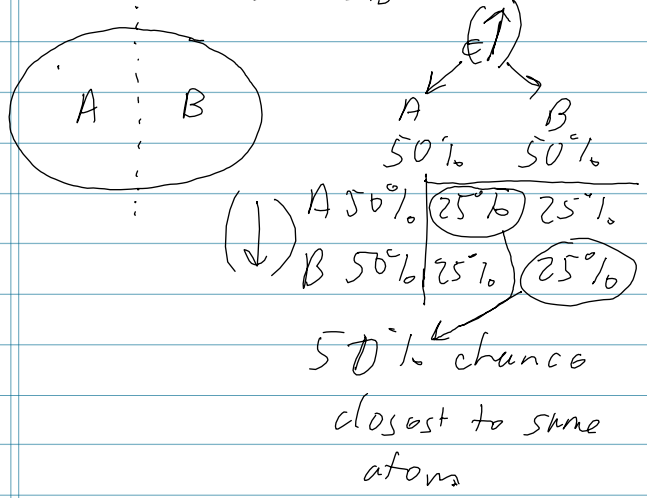 A B
(e↑)
A B
50% 50%
A 50% 25% 25%
(↓)
B 50% 25% 25%
50% chance
closest to same
atom